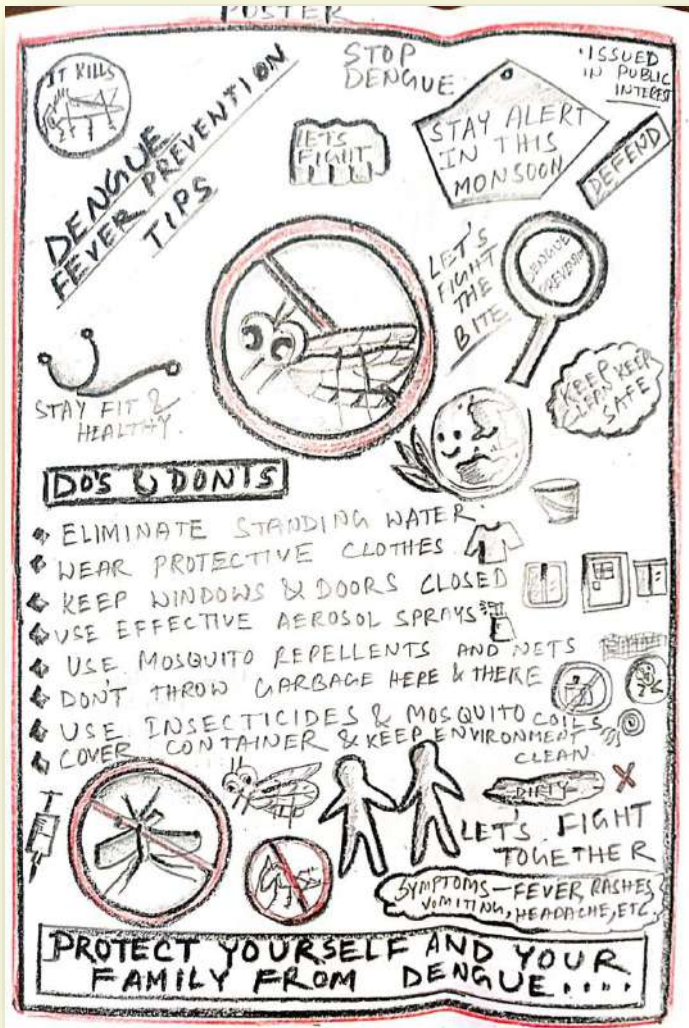 POSTER
IT KILLS
DENGUE
FEVER PREVENTION
TIPS
STOP
DENGUE
LETS
FIGHT
STAY ALERT
IN THIS
MONSOON
ISSUED
IN PUBLIC
INTEREST
DEFEND
LET'S
FIGHT
THE
BITE
DENGUE
PREVENTION
KEEP
CLEAN KEEP
SAFE
STAY FIT &
HEALTHY.
DO'S & DONTS
ELIMINATE STANDING WATER
WEAR PROTECTIVE CLOTHES
KEEP WINDOWS & DOORS CLOSED
USE EFFECTIVE AEROSOL SPRAYS
USE MOSQUITO REPELLENTS AND NETS
DON'T THROW GARBAGE HERE & THERE
USE INSECTICIDES & MOSQUITO COILS
COVER CONTAINER & KEEP ENVIRONMENT
CLEAN
DIRTY
LET'S FIGHT
TOGETHER
SYMPTOMS - FEVER, RASHES
VOMITING, HEADACHE, ETC.
PROTECT YOURSELF AND YOUR
FAMILY FROM DENGUE....